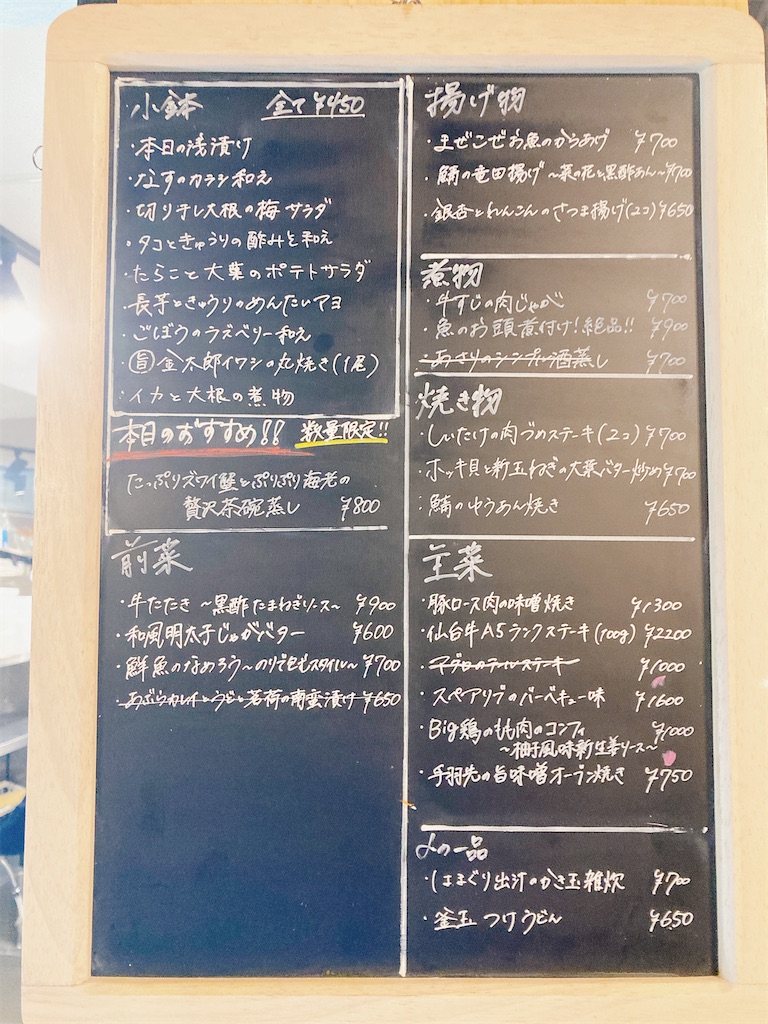 小鉢 全て¥450
・本日の浅漬け
・なすのカラシ和え
・切り干し大根の梅サラダ
・タコときゅうりの酢みそ和え
・たらこと大葉のポテトサラダ
・長芋ときゅうりのめんたいマヨ
・ごぼうのラズベリー和え
・旨金太郎イワシの丸焼き(1尾)
・イカと大根の煮物
本日のおすすめ!! 数量限定!!
たっぷりズワイ蟹とぷりぷり海老の
贅沢茶碗蒸し ¥800
前菜
・牛たたき 〜黒酢たまねぎソース〜 ¥900
・和風明太子じゃがバター ¥600
・鮮魚のなめろう〜のりで包むスタイル〜 ¥700
・あぶらカレイとうどと茗荷の南蛮漬け ¥650
揚げ物
・まぜこぜお魚のからあげ ¥700
・鯖の竜田揚げ 〜菜の花と黒酢あん〜 ¥700
・銀杏とれんこんのさつま揚げ(2コ) ¥650
煮物
・牛すじの肉じゃが ¥700
・魚のお頭煮付け!絶品!! ¥900
・あさりのシンプル酒蒸し ¥700
焼き物
・しいたけの肉づめステーキ(2コ) ¥700
・ホッキ貝と新玉ねぎの大葉バター炒め ¥700
・鯖のゆうあん焼き ¥650
主菜
・豚ロース肉の味噌焼き ¥1300
・仙台牛A5ランクステーキ(100g) ¥2200
・マグロのテールステーキ ¥1000
・スペアリブのバーベキュー味 ¥1600
・Big鶏のもも肉のコンフィ ¥1000
〜柚子風味新生姜ソース〜
・手羽先の旨味噌オーブン焼き ¥750
〆の一品
・はまぐり出汁のかき玉雑炊 ¥700
・釜玉つけうどん ¥650